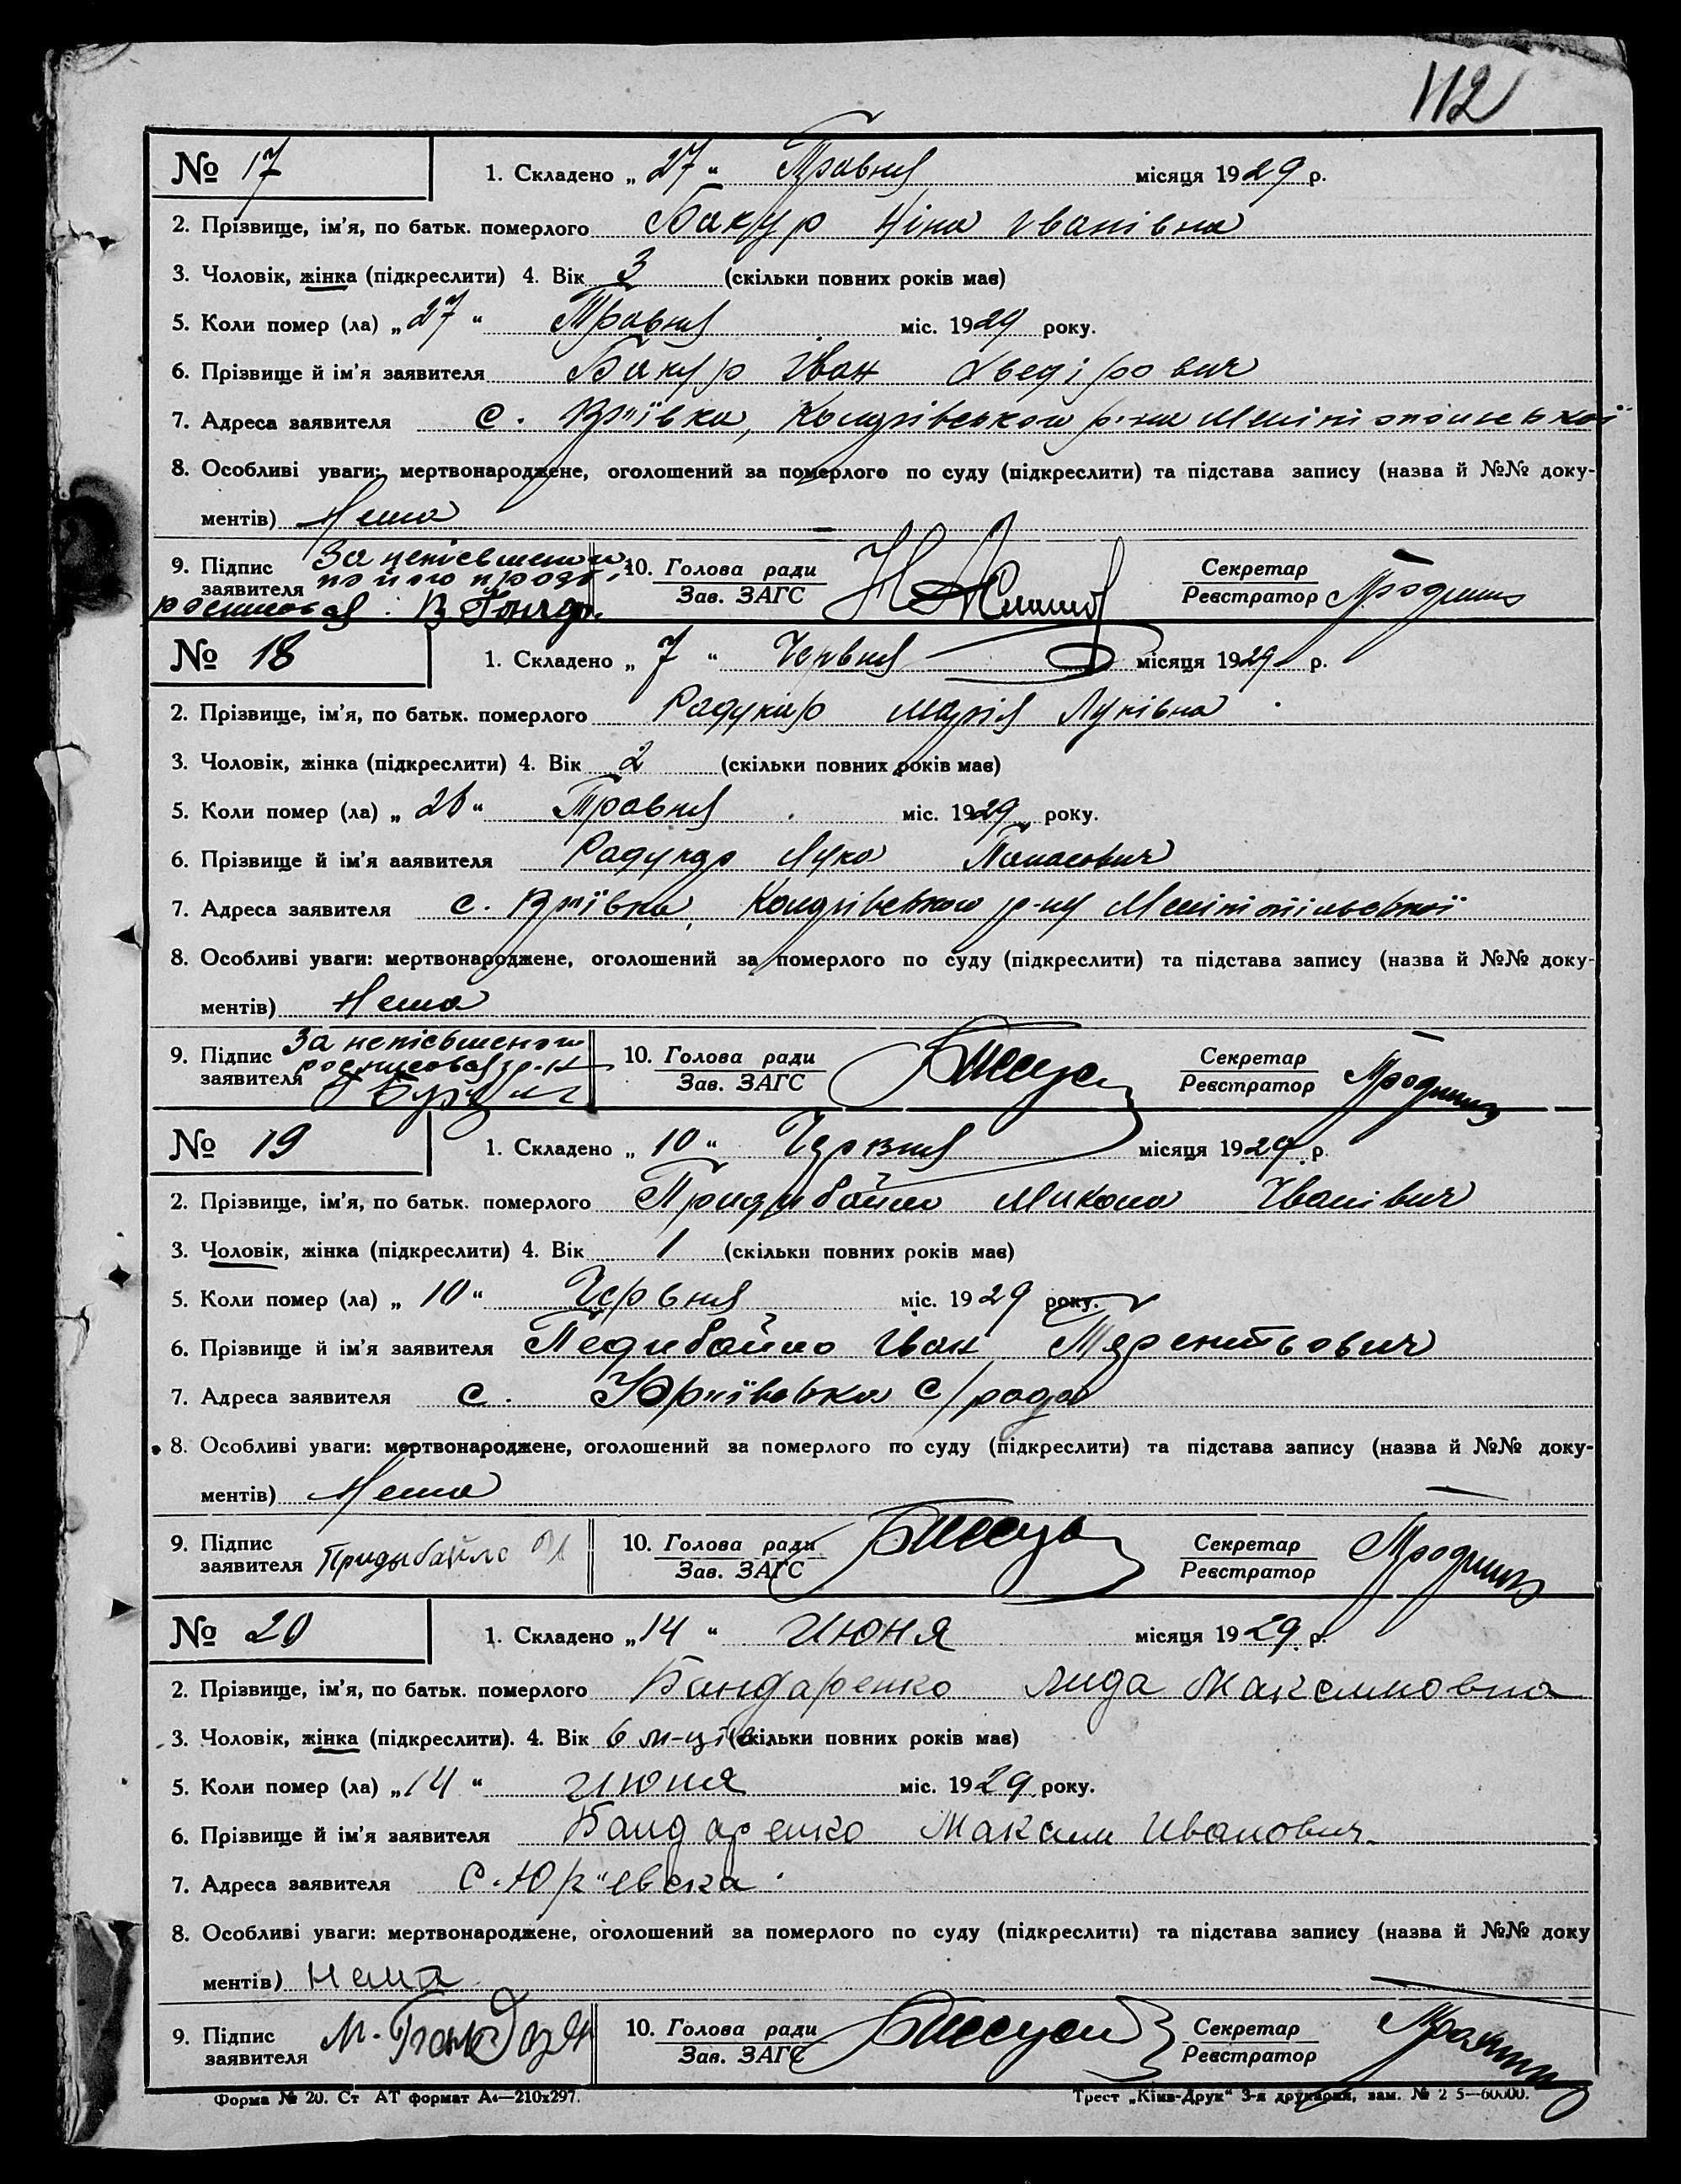 112
№ 17 1. Складено „ 27 “ Травня місяця 1929 р.
2. Прізвище, ім'я, по батьк. померлого Бакур Ніна Іванівна
3. Чоловік, жінка (підкреслити) 4. Вік 3 (скільки повних років має)
5. Коли помер (ла) „ 27 “ Травня міс. 1929 року.
6. Прізвище й ім'я заявителя Бакур Іван
7. Адреса заявителя с.
8. Особливі уваги: мертвонароджене, оголошений за померлого по суду (підкреслити) та підстава запису (назва й №№ доку-
ментів) Нема
9. Підпис 10. Голова ради Секретар
заявителя Зав. ЗАГС Реєстратор
№ 18 1. Складено „ 7 “ Червня місяця 1929 р.
2. Прізвище, ім'я, по батьк. померлого Марія Луківна
3. Чоловік, жінка (підкреслити) 4. Вік 2 (скільки повних років має)
5. Коли помер (ла) „ “ Травня міс. 1929 року.
6. Прізвище й ім'я ааявителя Лука Панасович
7. Адреса заявителя с.
8. Особливі уваги: мертвонароджене, оголошений за померлого по суду (підкреслити) та підстава запису (назва й №№ доку-
ментів) Нема
9. Підпис 10. Голова ради Секретар
заявителя Зав. ЗАГС Реєстратор
№ 19 1. Складено „ 10 “ Червня місяця 1929 р.
2. Прізвище, ім'я, по батьк. померлого Микола Іванівич
3. Чоловік, жінка (підкреслити) 4. Вік 1 (скільки повних років має)
5. Коли помер (ла) „ 10 “ Червня міс. 1929 року.
6. Прізвище й ім'я заявителя Педибайло Іван Терентьович
7. Адреса заявителя с. Юр'ївська с/рада
8. Особливі уваги: мертвонароджене, оголошений за померлого по суду (підкреслити) та підстава запису (назва й №№ доку-
ментів) Нема
9. Підпис Придыбайло 10. Голова ради Секретар
заявителя Зав. ЗАГС Реєстратор
№ 20 1. Складено „ 14 “ Июня місяця 1929 р.
2. Прізвище, ім'я, по батьк. померлого Бандаренко Лида Максимовна
3. Чоловік, жінка (підкреслити). 4. Вік 6 м-ців (скільки повних років має)
5. Коли помер (ла) „ 14 “ Июня міс. 1929 року.
6. Прізвище й ім'я заявителя Бандаренко Максим Иванович
7. Адреса заявителя с. Юр"евска
8. Особливі уваги: мертвонароджене, оголошений за померлого по суду (підкреслити) та підстава запису (назва й №№ доку
ментів) Нема
9. Підпис 10. Голова ради Секретар
заявителя Зав. ЗАГС Реєстратор
Форма № 20. Ст АТ формат А4—210x297. Трест „Київ-Друк“ 3-я друкарня, зам. № 2 5—60000.